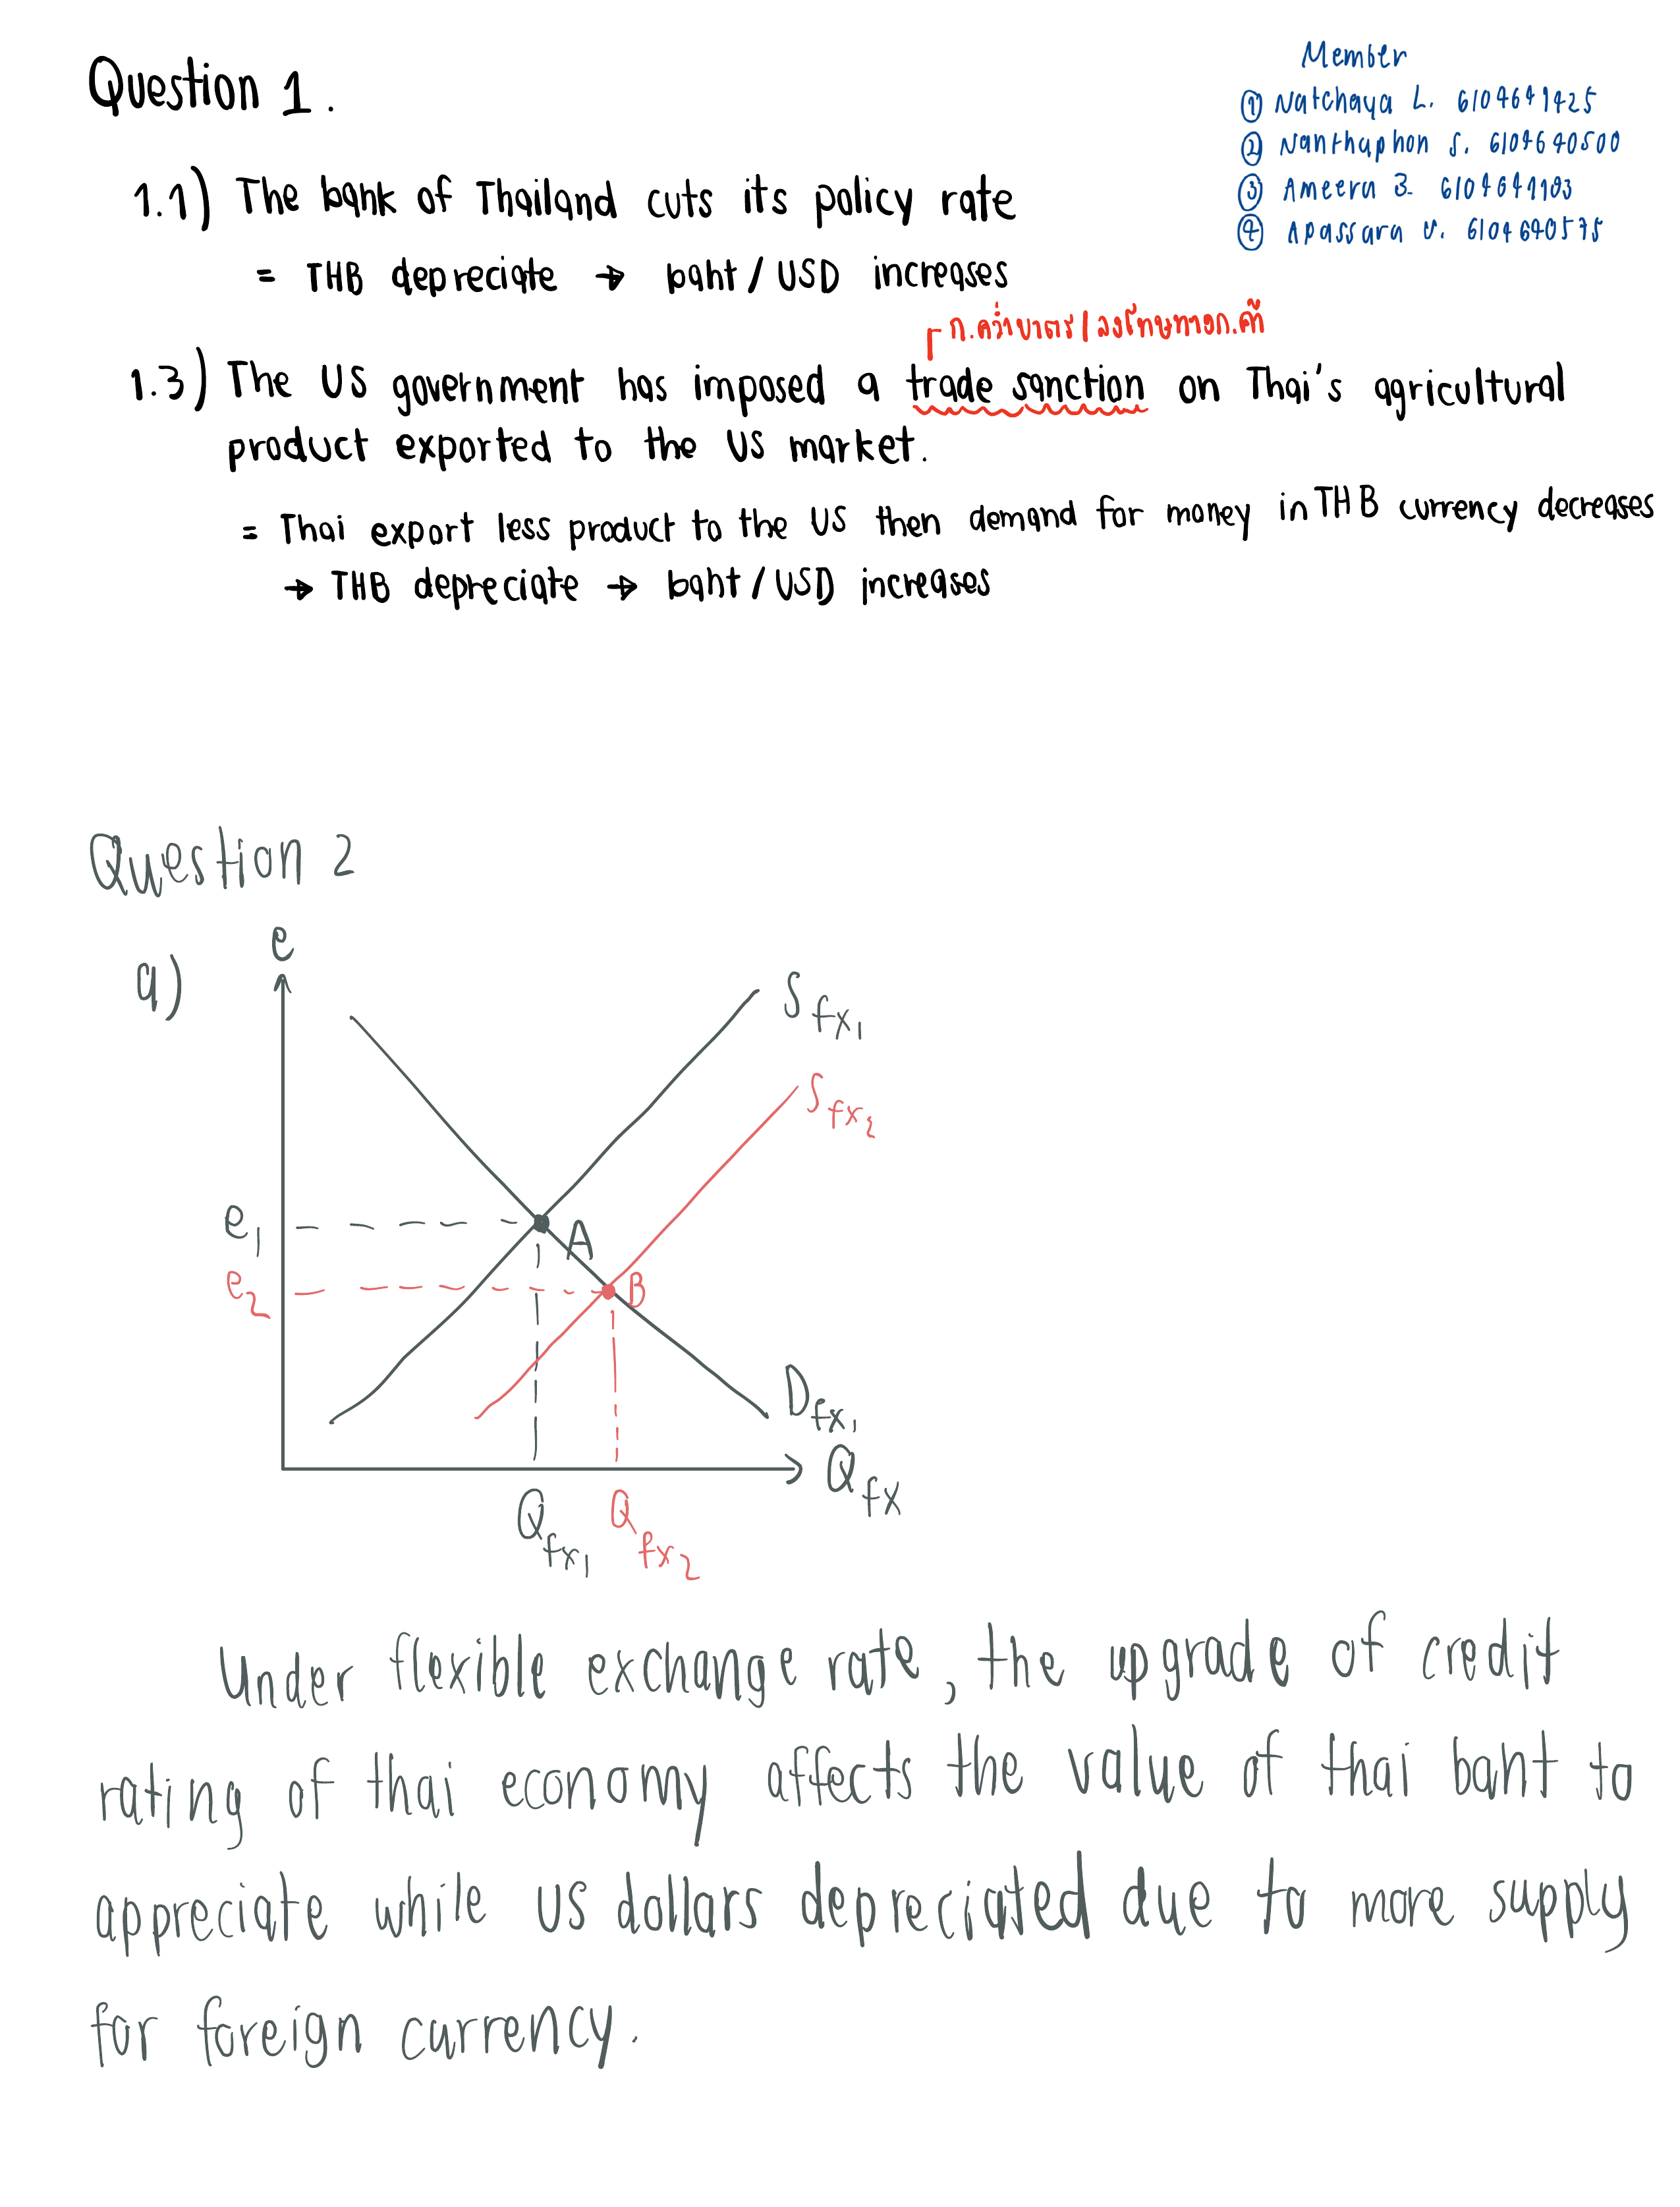 Question 1.
Member
① Natchaya L. 6104641425
② Nanthaphon S. 6104640500
③ Ameera B. 6104641103
④ Apassara V. 6104640575
1.1) The bank of Thailand cuts its policy rate
= THB depreciate → baht / USD increases
ก.คว่ำบาตร / ลงโทษทาง ก.ค้า
1.3) The US government has imposed a trade sanction on Thai's agricultural
product exported to the US market.
= Thai export less product to the US then demand for money in THB currency decreases
→ THB depreciate → baht / USD increases
Question 2
a)
e
S fx1
S fx2
e1
A
e2
B
D fx1
Q fx
Q fx1
Q fx2
Under flexible exchange rate, the upgrade of credit
rating of thai economy affects the value of thai baht to
appreciate while US dollars depreciated due to more supply
for foreign currency.